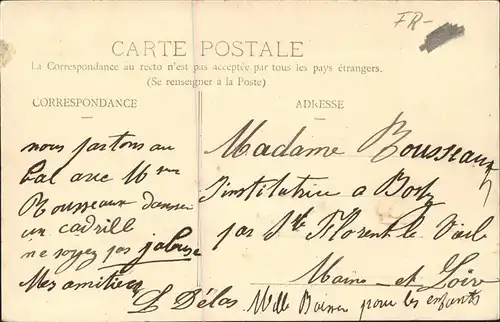 FR-
CARTE POSTALE
La Correspondance au recto n'est pas acceptée par tous les pays étrangers.
(Se renseigner à la Poste)
CORRESPONDANCE
ADRESSE
nous partons au
bal avec Mr
Rousseaux danser
un cadrille
ne soyez pas jalouse
Mes amitiés
Madame Rousseaux
Institutrice a
par St Florent le Vieil
Maine-et-Loire
Mlle pour les enfants